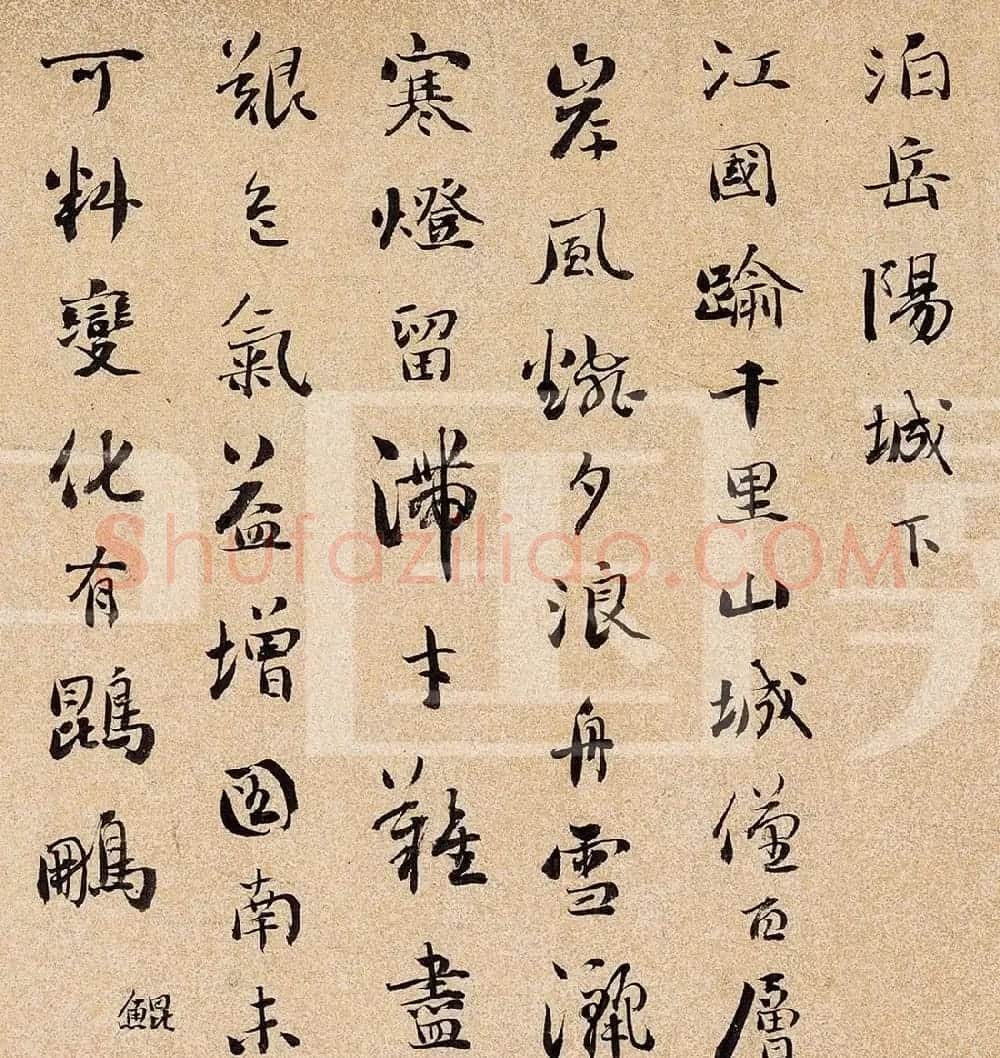 泊岳陽城下
江國踰千里山城僅百層
岸風飜夕浪舟雪灑
寒燈留滯才難盡
艱危氣益增圖南未
可料變化有鵾鵬
鯤
Shufaziliao.COM